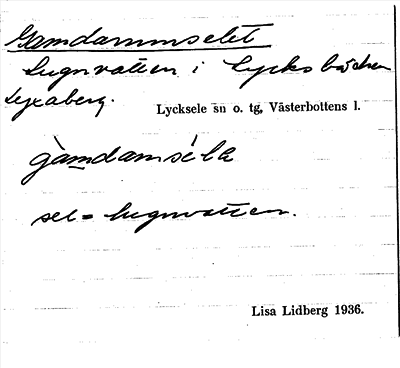 Gamdammselet
Lugnvatten i Lycksbäcken
Lyxaberg.
Lycksele sn o. tg, Västerbottens l.
gàmdamsèlä
sel = lugnvatten.
Lisa Lidberg 1936.